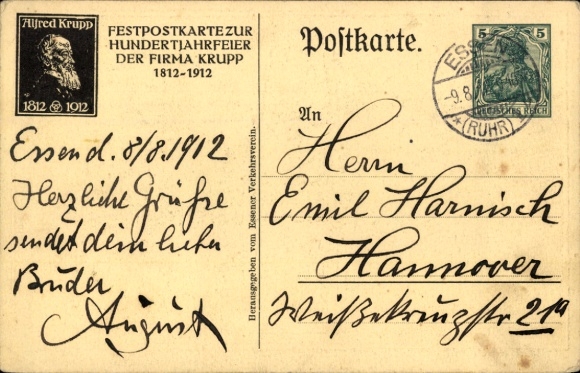 Alfred Krupp
1812 1912
FESTPOSTKARTE ZUR
HUNDERTJAHRFEIER
DER FIRMA KRUPP
1812-1912
Postkarte.
5 5
DEUTSCHES REICH
ESSEN
-9.8.
*(RUHR)
An
Essen d. 8/8.1912
Herzliche Grüße
sendet dein lieber
Bruder
August
Herausgegeben vom Essener Verkehrsverein.
Herrn
Emil Harnisch
Hannover
Weißekreuzstr 21a